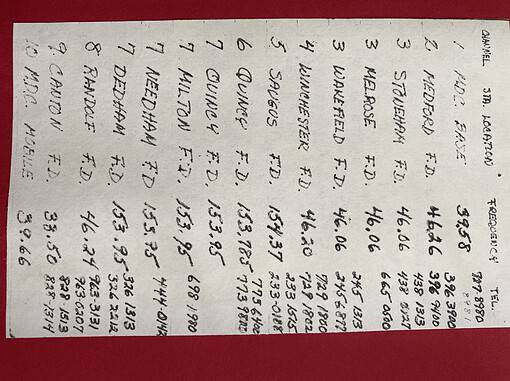 CHANNEL STA. LOCATION FREQUENCY TEL.
1 M.D.C. BASE 39.58 727.8980
396 3900
2 MEDFORD F.D. 46.26 396 9400
3 STONEHAM F.D. 46.06 438 0127
438 1313
3 MELROSE F.D. 46.06 665 0500
3 WAKEFIELD F.D. 46.06 245 1313
4 WINCHESTER F.D. 46.20 729 1802
729 1800
5 SAUGUS F.D. 154.37 233 1575
6 QUINCY F.D. 153.785
7 QUINCY F.D. 153.95
7 MILTON F.D. 153.95 698 1900
7 NEEDHAM F.D 153.75 444-0142
7 DEDHAM F.D. 153.95 326 1313
8 RANDOLF F.D. 46.24 963 3131
963 0207
9 CANTON F.D. 33.50 828 1313
828-1314
10 M.D.C. MOBILE 39.66